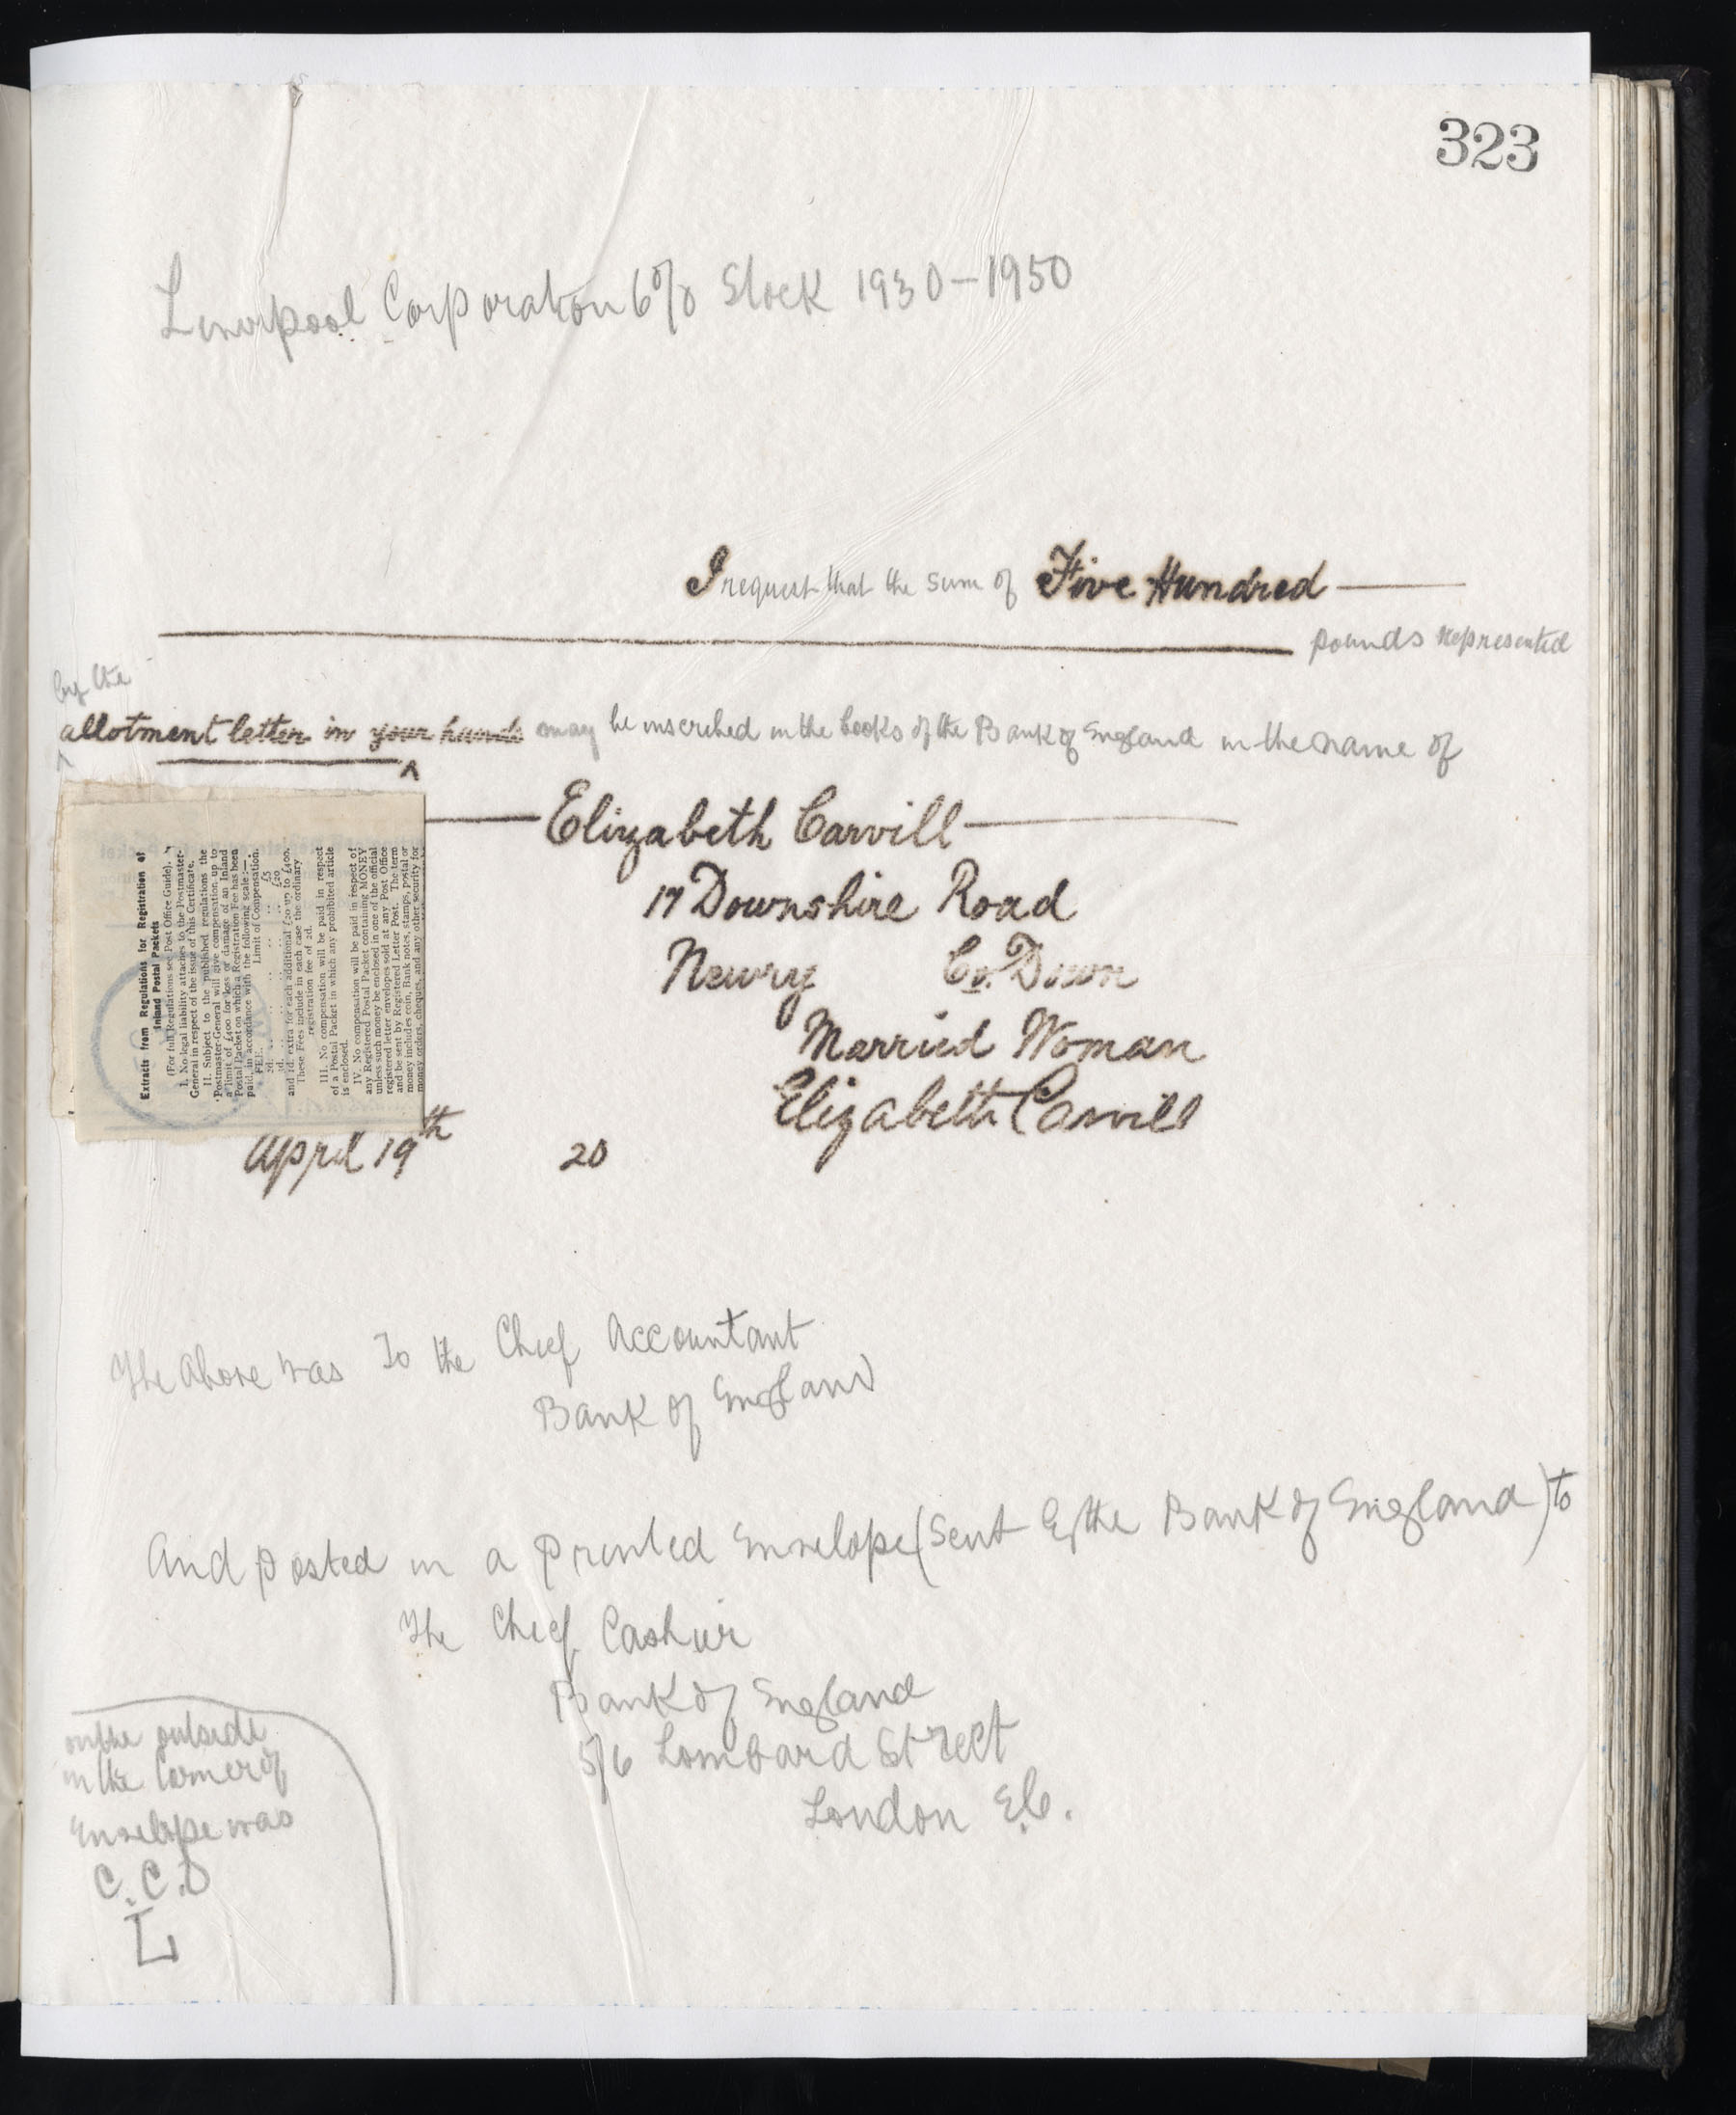 323
Liverpool Corporation 6% Stock 1930-1950
I request that the sum of Five Hundred
pounds represented
by the
allotment letter in your hands may be inscribed in the books of the Bank of England in the name of
Elizabeth Carvill
17 Downshire Road
Newry Co. Down
Married Woman
Elizabeth Carvill
April 19th 20
Extracts from Regulations for Registration of
Inland Postal Packets
(For full Regulations see Post Office Guide).
I. No legal liability attaches to the Postmaster-
General in respect of the issue of this Certificate.
II. Subject to the published regulations the
Postmaster-General will give compensation, up to
a limit of £400 for loss or damage of an Inland
Postal Packet on which a Registration Fee has been
paid, in accordance with the following scale:—
FEE. Limit of Compensation.
2d. .. .. .. .. £5
3d. .. .. .. .. £20
and 1d. extra for each additional £20 up to £400.
These Fees include in each case the ordinary
registration fee of 2d.
III. No compensation will be paid in respect
of a Postal Packet in which any prohibited article
is enclosed.
IV. No compensation will be paid in respect of
any Registered Postal Packet containing MONEY
unless such money be enclosed in one of the official
registered letter envelopes sold at any Post Office
and be sent by Registered Letter Post. The term
money includes coin, Bank notes, stamps, postal or
money orders, cheques, and any other security for
The above was To the Chief Accountant
Bank of England
And posted in a printed Envelope (sent by the Bank of England) to
The Chief Cashier
Bank of England
5/6 Lombard Street
London E.C.
on the outside
in the Corner of
Envelope was
C.C.O
L